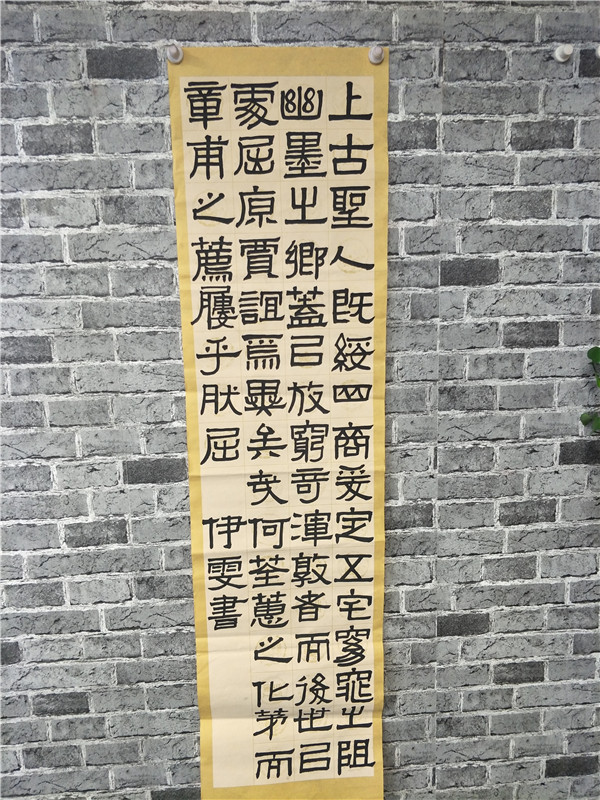 上古聖人既綏四商爰定五宅窕㞢阻
幽墨㞢鄉蓋㠯放窮奇渾敦者而後世㠯
處屈原賈誼爲異矣哉何荃蕙之化茅而
章甫之薦屨乎肰屈
伊雯書